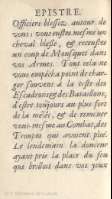 EPISTRE.
Officiers blessez autour de
vous; vous eustes mesme un
cheval blessé, & receustes
un coup de Mousquet dans
vos Armes. Tout cela ne
vous empécha point de char-
ger souvent à la teste des
Escadrons & des Bataillons,
d'estre toûjours au plus fort
de la mêlée, & de remener
vous-mesme au Combat des
Troupes qui avoient plié.
Le lendemain la
ayant pris la place du feu
qui brilloit dans vos yeux